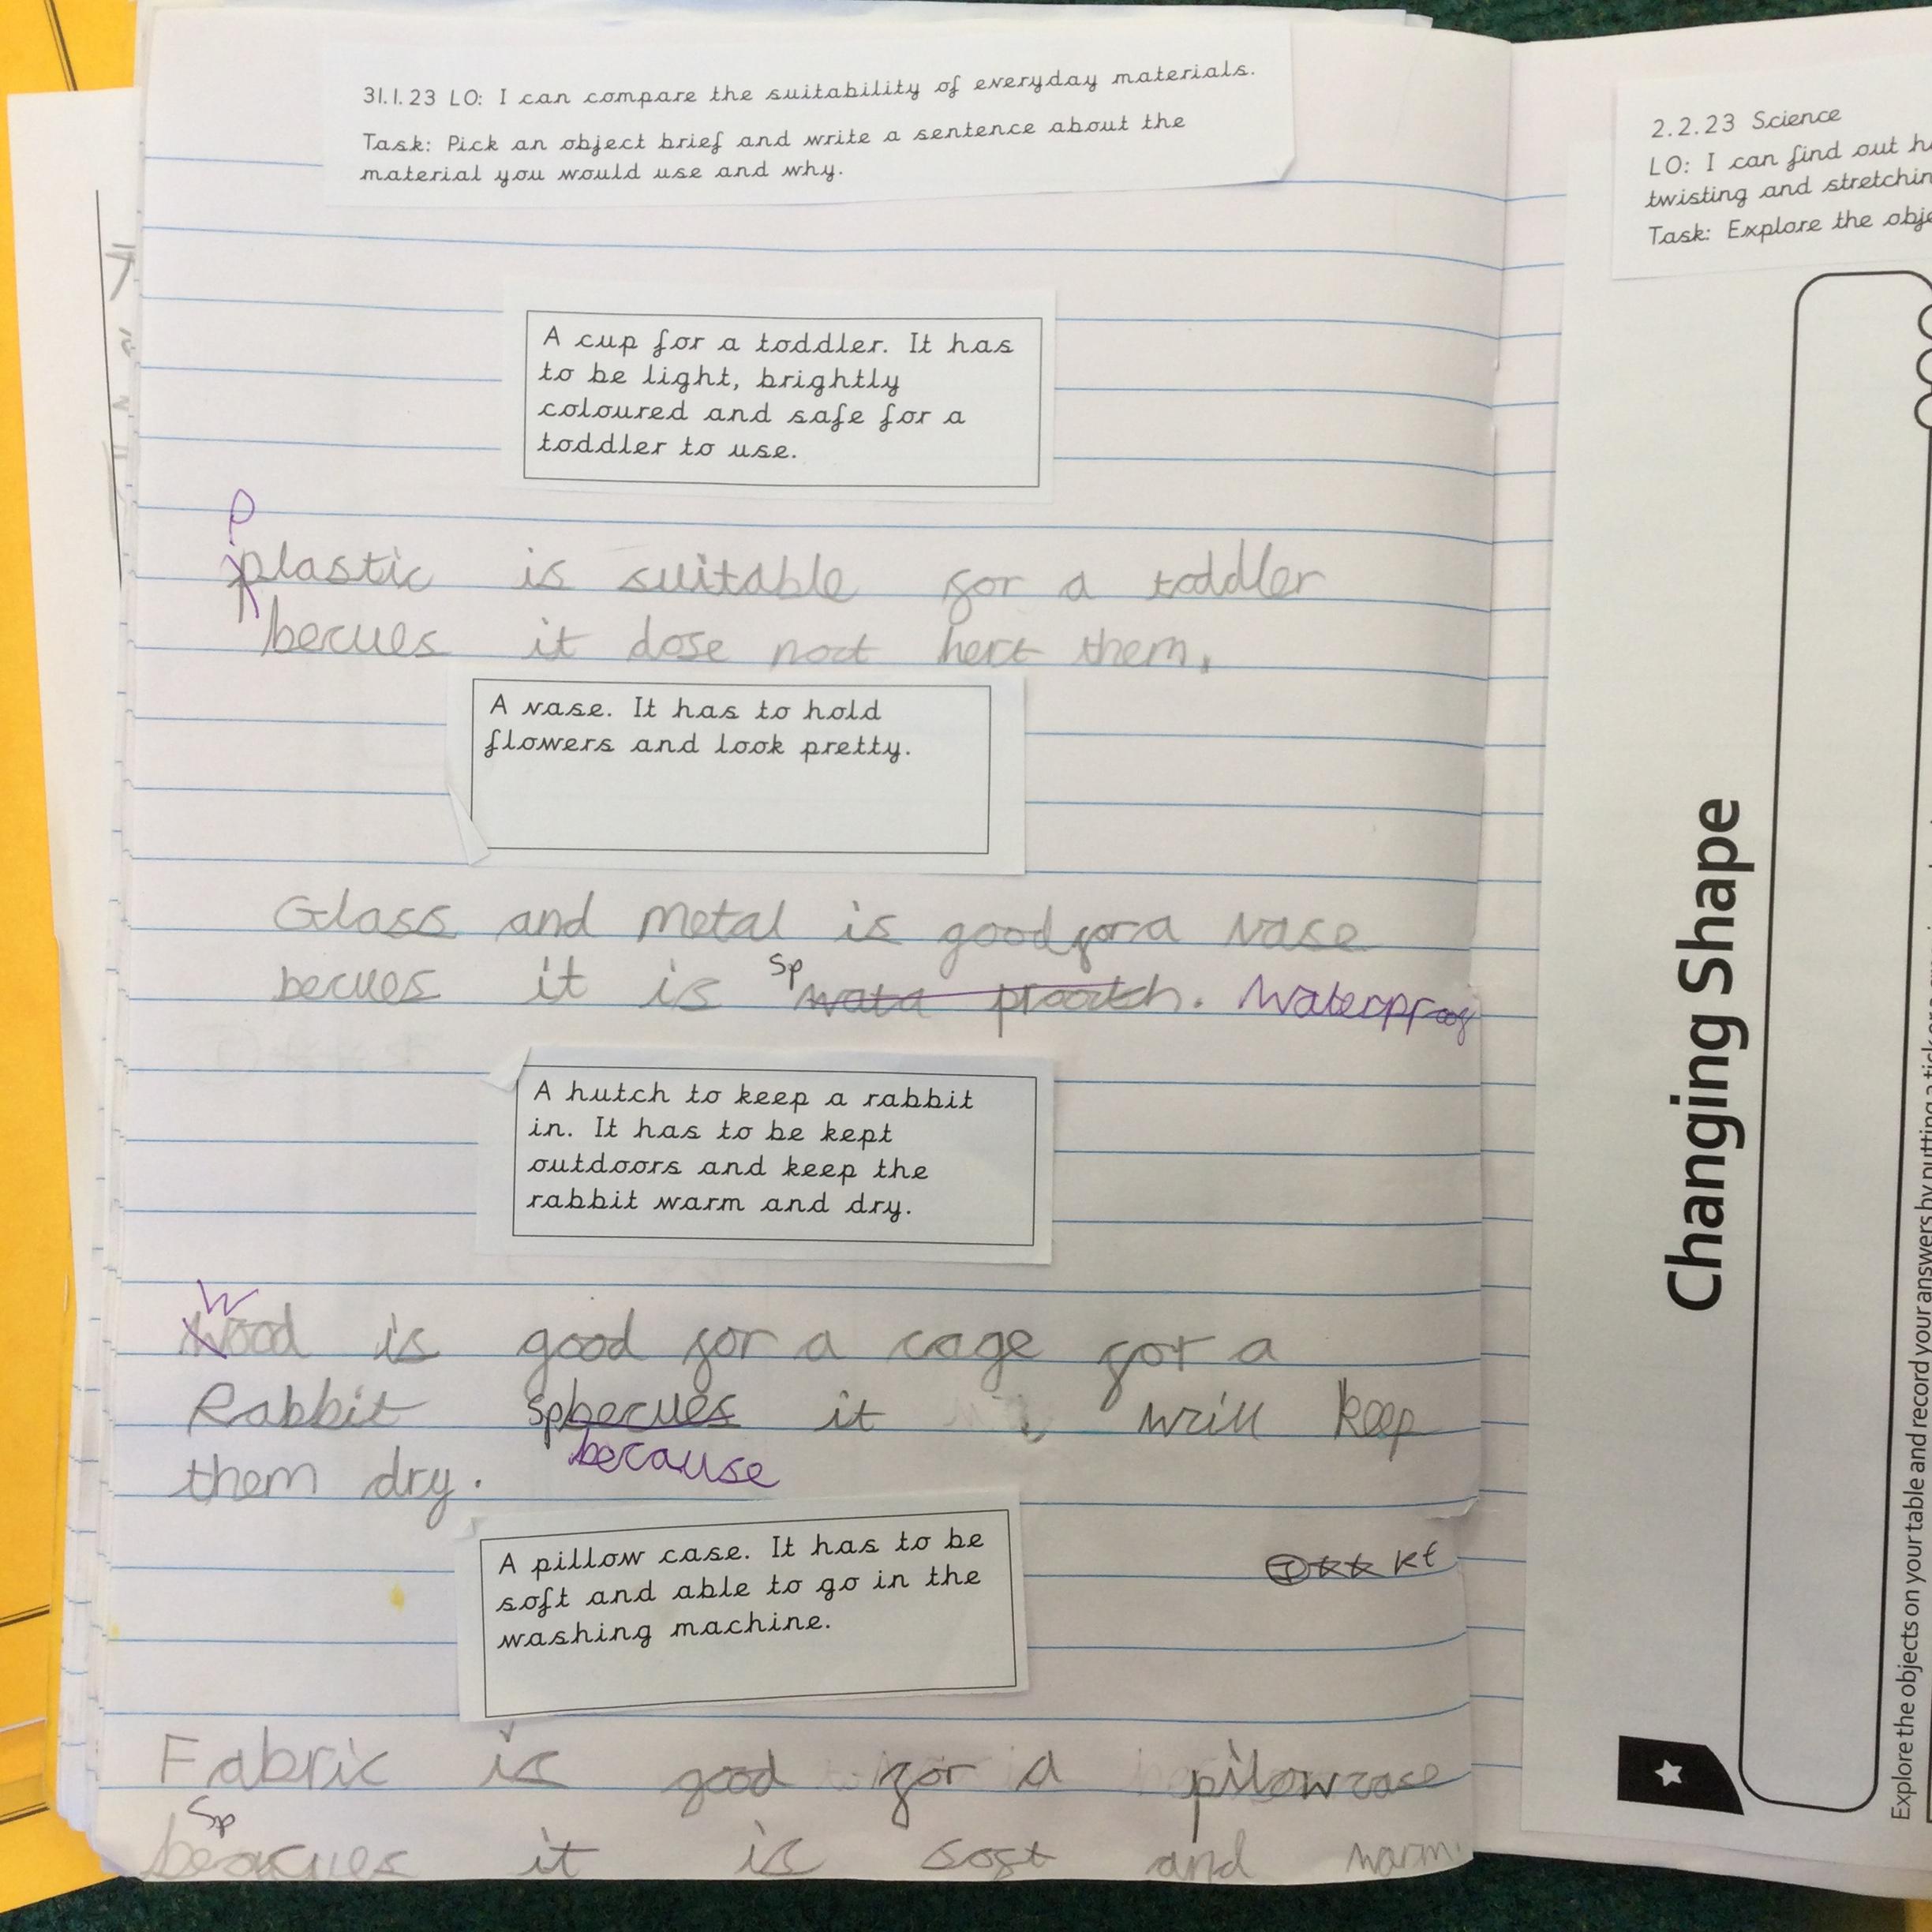 31.1.23 LO: I can compare the suitability of everyday materials.
Task: Pick an object brief and write a sentence about the
material you would use and why.
A cup for a toddler. It has
to be light, brightly
coloured and safe for a
toddler to use.
P
plastic is suitable for a toddler
becues it dose noot hert them.
A vase. It has to hold
flowers and look pretty.
Glass and metal is good for a vase
becues it is sp wata prooth. Waterproof
A hutch to keep a rabbit
in. It has to be kept
outdoors and keep the
rabbit warm and dry.
W
Wood is good for a cage for a
Rabbit sp becues it will keep
because
them dry.
A pillow case. It has to be
soft and able to go in the
washing machine.
Fabric is good for a pilowcase
Sp
it is soft and warm.
2.2.23 Science
LO: I can find out
twisting and
Task: Explore the
Changing Shape
Explore the objects on your table and record your answers by putting a tick or a